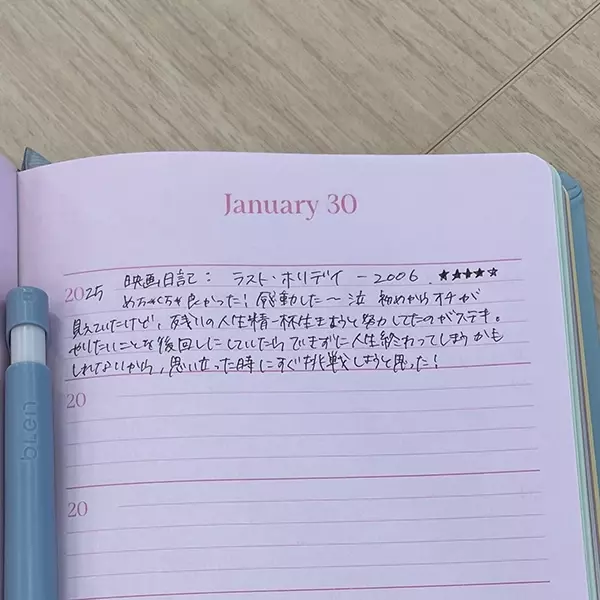 January 30
2025 映画日記： ラスト・ホリデイ －2006 ★★★★★
めちゃくちゃ良かった！感動した〜泣 初めからオチが
見えていたけど、残りの人生精一杯生きようと努力してたのがステキ。
やりたいことを後回しにしていたらできずに人生終わってしまうかも
しれないから、思い立った時にすぐ挑戦しようと思った！
20
20
blen